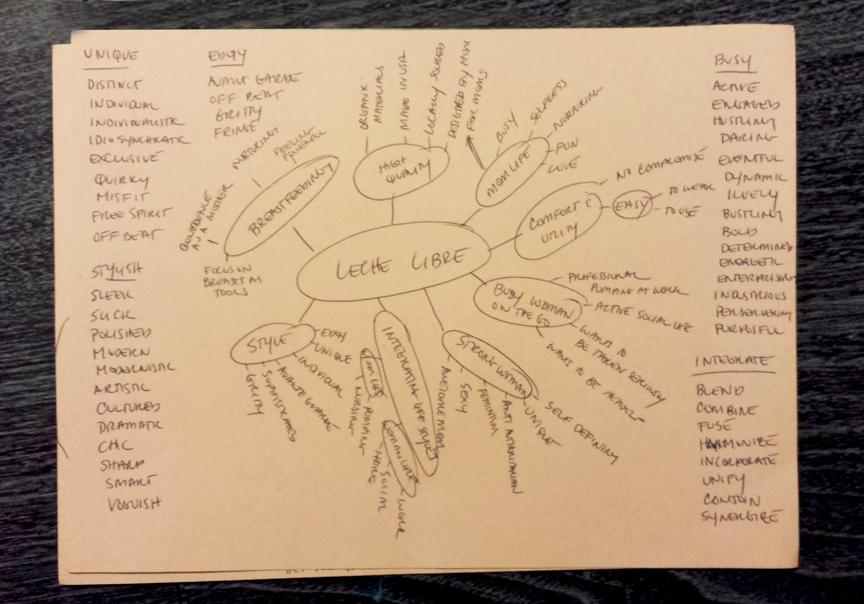 UNIQUE
DISTINCT
INDIVIDUAL
INDIVIDUALISTIC
IDIOSYNCRATIC
EXCLUSIVE
QUIRKY
MISFIT
FREE SPIRIT
OFF BEAT
STYLISH
SLEEK
SLICK
POLISHED
MODERN
MODERNISTIC
ARTISTIC
CULTURED
DRAMATIC
CHIC
SHARP
SMART
VOGUISH
EDGY
AVANT GARDE
OFF BEAT
GRITTY
FRINGE
LECHE LIBRE
BREASTFEEDING
NURTURING
FEELING
POWERFUL
CONFIDENCE
AS A MOTHER
FOCUS ON
BREASTS AS
TOOLS
HIGH
QUALITY
ORGANIC
MATERIALS
MADE IN USA
LOCALLY SOURCED
DESIGNED BY MOM
FOR MOMS
MOM LIFE
BUSY
SELFLESS
NURTURING
FUN
LOVE
COMFORT &
UTILITY
NO COMPROMISE
EASY
TO WEAR
TO USE
BUSY WOMAN
ON THE GO
PROFESSIONAL
WOMAN AT WORK
ACTIVE SOCIAL LIFE
WANTS TO
BE TAKEN SERIOUSLY
WANT TO BE
STRONG WOMAN
SELF DEFINING
UNIQUE
ANTI AUTHORITARIAN
FEMINISM
SEXY
AWESOME MOM
INTEGRATING LIFE STYLES
MOM LIFE
NURSING
WOMAN LIFE
WORK
SOCIAL
HOME
STYLE
EDGY
UNIQUE
INDIVIDUAL
AVANTE GUARDE
SOPHISTICATED
GRITTY
BUSY
ACTIVE
ENGAGED
HUSTLING
DARING
EVENTFUL
DYNAMIC
LIVELY
BUSTLING
BOLD
DETERMINED
ENERGETIC
ENTERPRISING
INDUSTRIOUS
PERSEVERING
PURPOSFUL
INTEGRATE
BLEND
COMBINE
FUSE
HARMONIZE
INCORPORATE
UNIFY
CONJOIN
SYNERGIZE